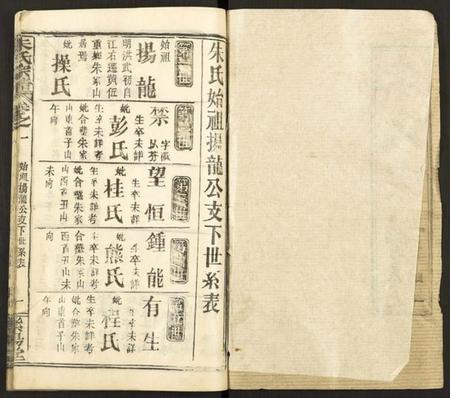 朱氏始祖揚龍公支下世系表
第一世
始祖
揚龍
明洪武初自
江右遷黃
重鄉朱家山
居焉
妣
操氏
第二世
榮
字
生卒未詳
妣
彭氏
生卒未詳考
妣合塟朱家
山東首子山
午向
第三世
望恒
生卒未詳
妣
桂氏
生卒未詳考
妣合塟朱家
山西首丑山
未向
第四世
鍾能
生卒未詳
妣
熊氏
生卒未詳考
合塟朱家山
西首丑山未
向
第五世
有生
生卒未詳
妣
程氏
生卒未詳考
妣合塟朱家
山東首子山
午向
朱氏宗譜
卷之
始祖揚龍公支下世系表
一